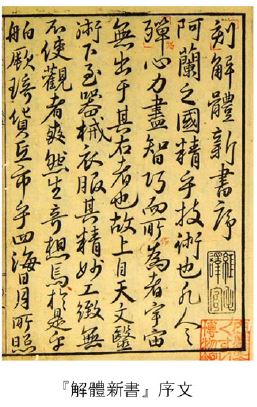 刻解體新書序
阿蘭之國精乎技術也凡人之
殫心力盡智巧而所爲者宇宙
無出于其右者也故上自天文醫
術下至器械衣服其精妙工緻無
不使觀者爽然生奇想焉於是乎
舶厥琦貨互市乎四海日月所照
『解體新書』序文